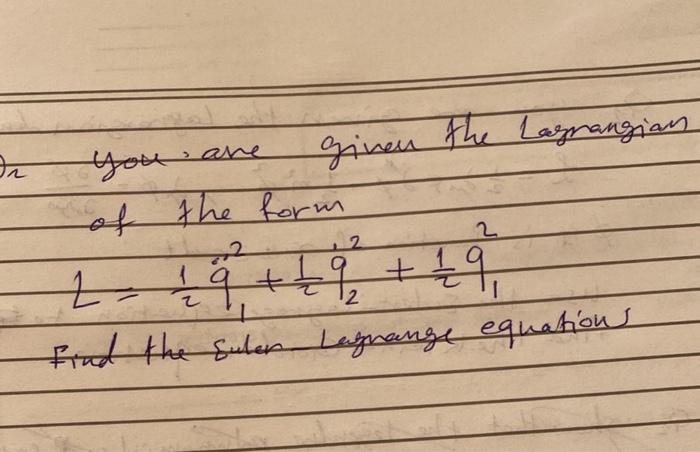 you are given the Lagrangian
of the form
L = ½ q̈₁² + ½ q̇₂² + ½ q₁²
Find the Euler Lagrange equations